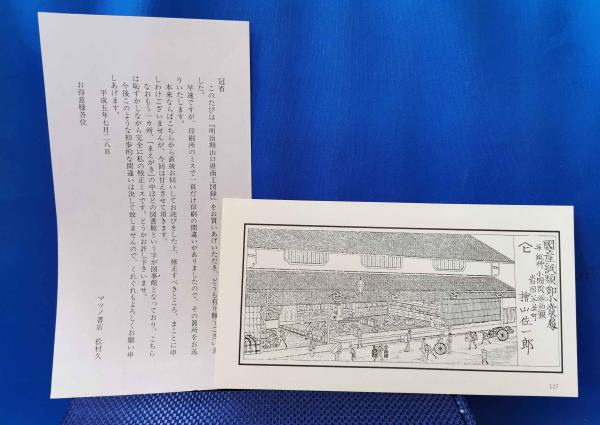 冠省
このたびは『明治期山口県商工図録』をお買いあげいただき、どうも有り難うございま
した。
早速ですが、印刷所のミスで一頁だけ印刷の間違いがありましたので、その箇所をお送
りいたします。
本来ならばこちらから直接お伺いしてお詫びをした上、修正すべきところ、まことに申
しわけございませんが、今回は甘えさせて頂きます。
なおもう一カ所、「まえがき」の中ほどの図書館という字が図事館となっており、こちら
は恥ずかしながら完全に私の校正ミスです。どうかお許し下さいませ。
今後このような初歩的な間違いは決して致しませんので、くれぐれもよろしくお願い申
しあげます。
平成五年七月二八日
マツノ書店 松村久
お得意様各位
國産紙類卸小賣商
岩国
檜山佐一郎
127